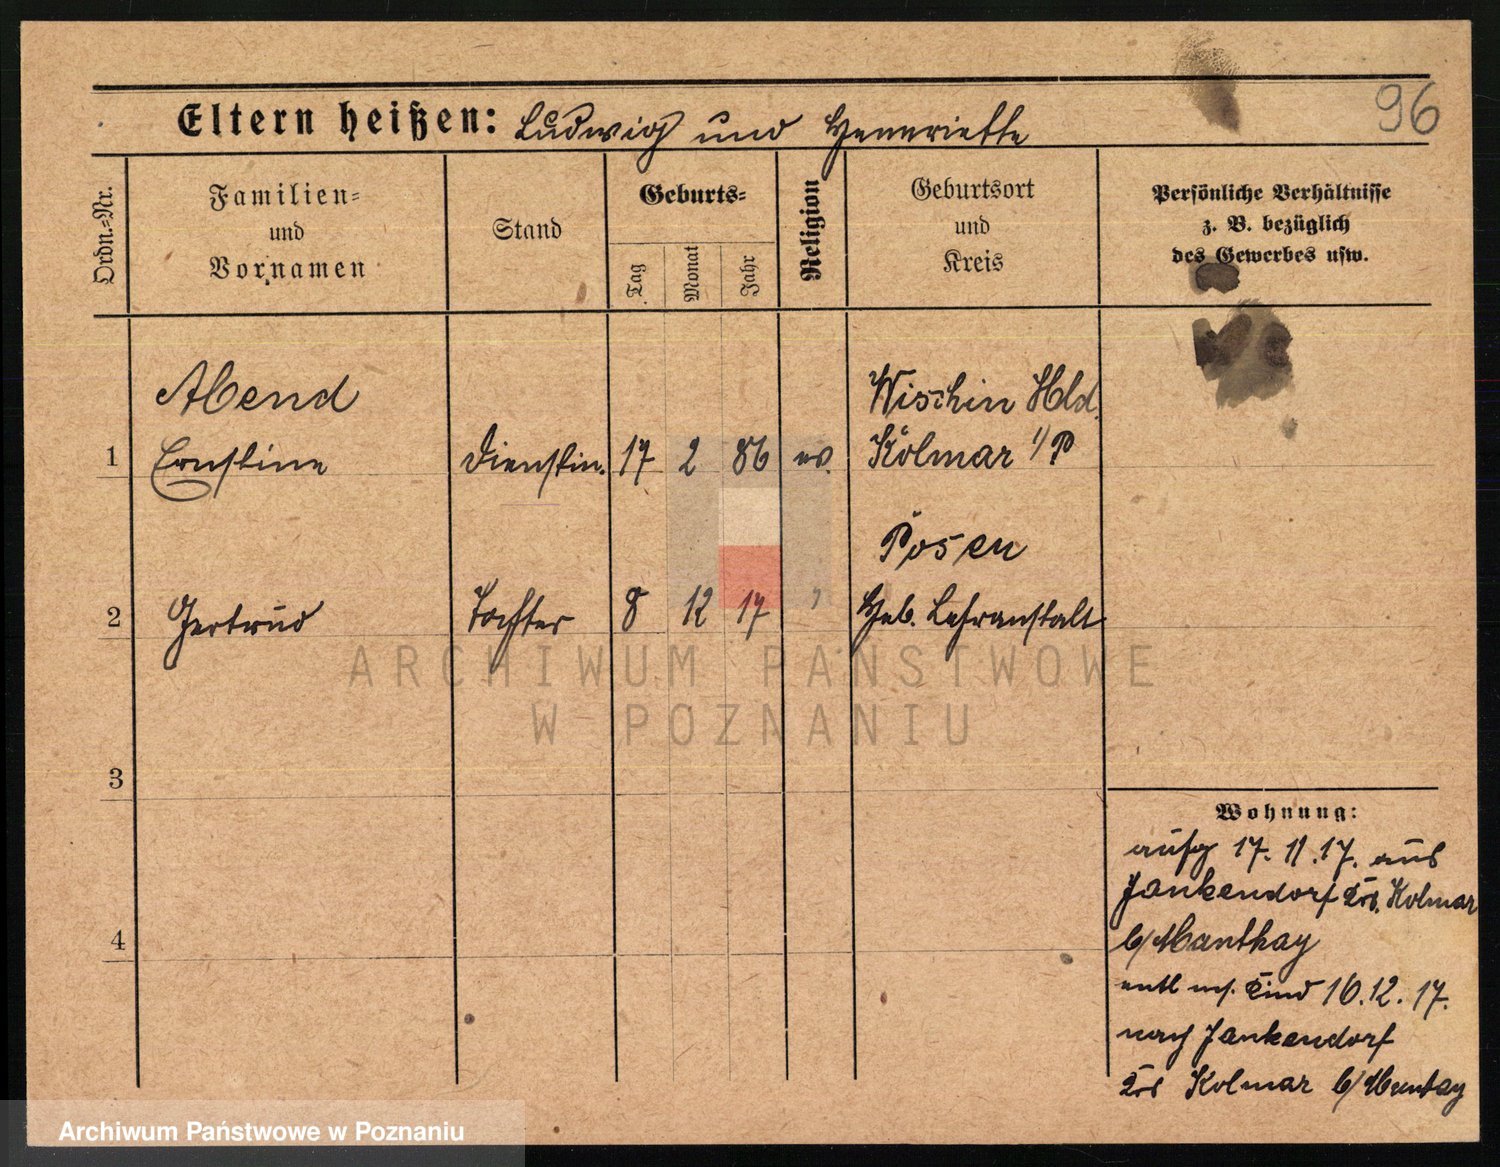 96
Eltern heißen: Ludwig und Henriette
Ordn.=Nr.
Familien=
und
Vornamen
Stand
Geburts=
Tag
Monat
Jahr
Religion
Geburtsort
und
Kreis
Persönliche Verhältnisse
z. B. bezüglich
des Gewerbes usw.
Abend
Wischin Hld.
1 Ernstine Dienstm. 17 2 86 ev. Kolmar i/P
Posen
2 Gertrud Tochter 8 12 17 " Heb. Lehranstalt
ARCHIWUM PAŃSTWOWE
W POZNANIU
3
4
Wohnung:
aufg 17.11.17. aus
Jankendorf Krs. Kolmar
b/Manthay
entl m. Kind 16.12.17.
nach Jankendorf
Krs Kolmar b/Mantay
Archiwum Państwowe w Poznaniu